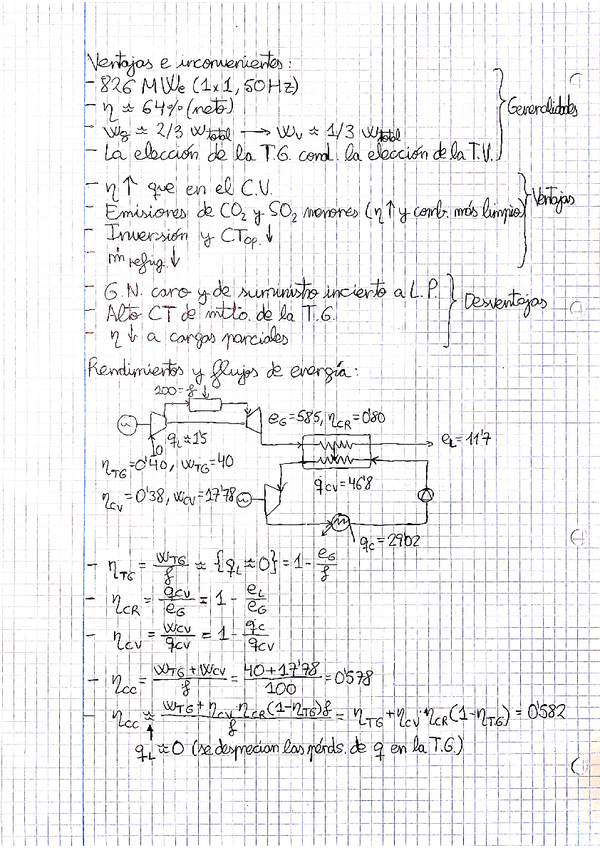 Ventajas e inconvenientes:
- 826 MWe (1x1, 50Hz)
- η ≈ 64% (neto)
- wg ≈ 2/3 wtotal → wv ≈ 1/3 wtotal
- La elección de la T.G. cond. la elección de la T.V.
Generalidades
- η↑ que en el C.V.
- Emisiones de CO2 y SO2 menores (η↑ y comb. más limpio)
- Inversión y CTop. ↓
- ṁ refrig. ↓
Ventajas
- G.N. caro y de suministro incierto a L.P.
- Alto CT de mtto. de la T.G.
- η ↓ a cargas parciales
Desventajas
Rendimientos y flujos de energía:
100 = f
eG = 58'5, ηCR = 0'80
10 qL ≈ 1'5
eL = 11'7
ηTG = 0'40, wTG = 40
qCV = 46'8
ηCV = 0'38, wCV = 17'78
qC = 29'02
- ηTG = wTG/f ≈ {qL ≈ 0} = 1 - eG/f
- ηCR = qCV/eG = 1 - eL/eG
- ηCV = wCV/qCV = 1 - qC/qCV
- ηCC = (wTG + wCV)/f = (40 + 17'78)/100 = 0'578
- ηCC ≈ (wTG + ηCV·ηCR(1-ηTG)f)/f = ηTG + ηCV·ηCR(1-ηTG) = 0'582
qL ≈ 0 (se desprecian las pérds. de q en la T.G.)